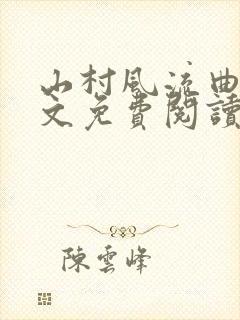 山村風流曲
文免費閱讀
陳雲峰